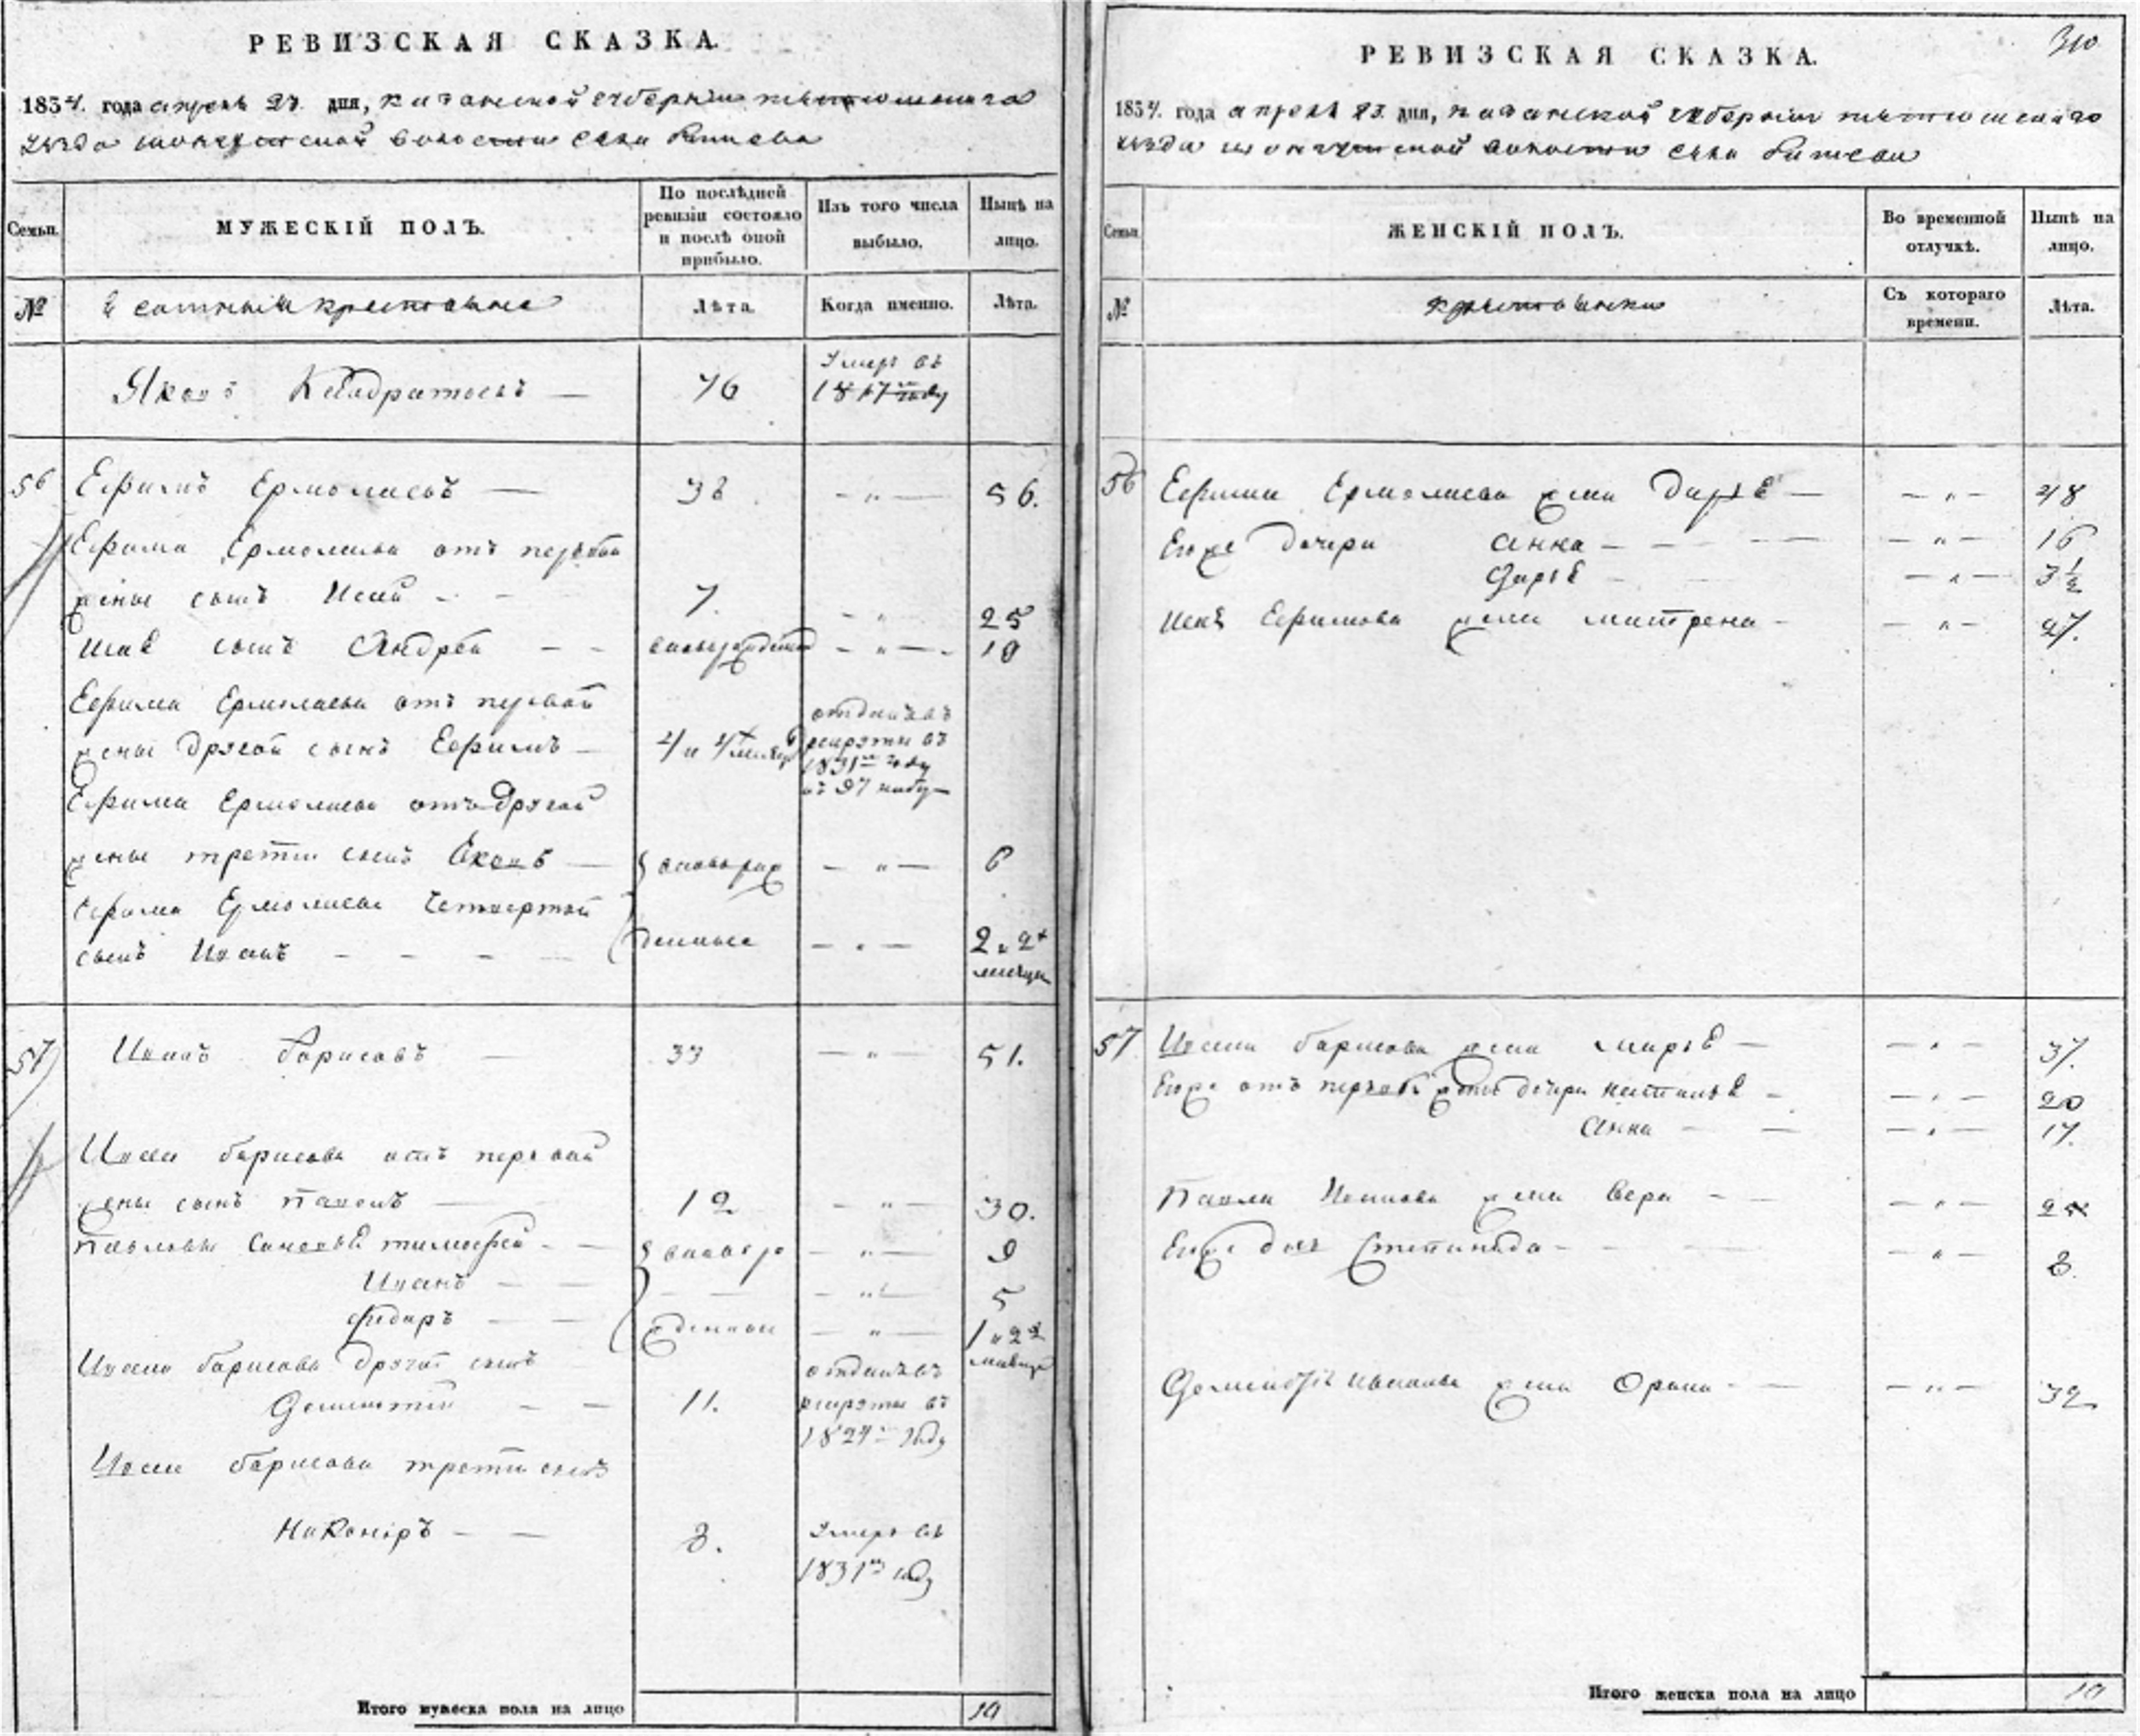 РЕВИЗСКАЯ СКАЗКА.
1834. года апреля 23. дня, казанской губернии тетюшскаго
уезда шонгутской волости села
Семьи.
МУЖЕСКІЙ ПОЛЪ.
По послѣдней ревизіи состояло и послѣ оной прибыло.
Изъ того числа выбыло.
Нынѣ на лицо.
№
крестьяне
Лѣта.
Когда именно.
Лѣта.
Яковъ Кондратьевъ — 76 Умеръ въ
18 17 году
56 Ефимъ Ермолаевъ — 38 — „ — 56.
Ефима Ермолаева отъ первой
жены сынъ Исай 7. — „ 25
Исая сынъ Андрей — — — „ — 10
Ефима Ермолаева отъ первой
жены другой сынъ Ефимъ — 4 и 4 отданъ въ
рекруты въ
1831 году
Ефима Ермолаева отъ другой
жены трети сынъ Яковъ — вновь рож — „ — 6
Ефима Ермолаева четвертой
сынъ Иванъ — — — денные — „ — 2 и 2
месяца
57 Иванъ Борисовъ — 33 — „ — 51.
Ивана Борисова отъ первой
жены сынъ Павелъ — 12 — „ — 30.
Павловы сыновья тимофей — вновь ро — „ — 9
Иванъ — — — „ — 5
Фидоръ — — жденные — „ — 1 и 2
месяца
Ивана Борисова другой сынъ
11. отданъ въ
рекруты въ
1824 году
Ивана Борисова трети сынъ
Никоноръ — — 8. Умеръ въ
1831 году
Итого мужеска пола на лицо 10
310
РЕВИЗСКАЯ СКАЗКА.
1834. года апреля 23. дня, казанской губернии тетюшскаго
уезда шонгутской волости села
Семьи.
ЖЕНСКІЙ ПОЛЪ.
Во временной отлучкѣ.
Нынѣ на лицо.
№
крестьянки
Съ котораго времени.
Лѣта.
56 Ефима Ермолаева жена Дарья — — „ — 48
Егоже дочери Анна — — — „ — 16
Дарья — — „ — 3 1/2
Исая Ефимова жена матрена — — „ — 27.
57 Ивана Борисова жена марья — — „ — 37.
Егоже отъ первой жены дочери наталья — — „ — 20
Анна — — — „ — 17.
Павла Иванова жена Вера — — — „ —
Егоже дочь Степанида — — „ — 8.
Иванова жена Орина — — — „ — 32
Итого женска пола на лицо 10